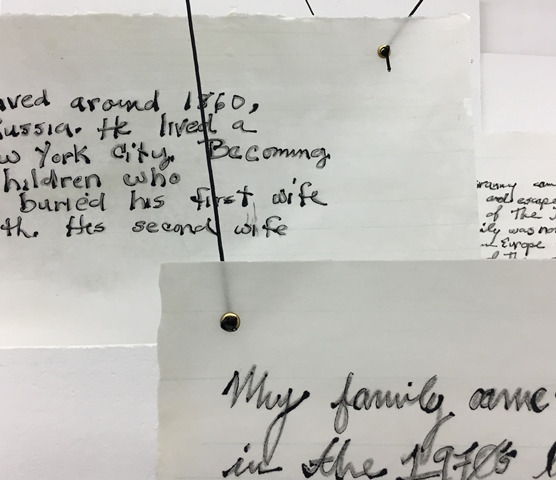 ved around 1860,
ussia. He lived a
w York City. Becoming
hildren who
buried his first wife
th. His second wife
granny cam
and escape
of The
ily was no
in Europe
My family came
in the 1970s